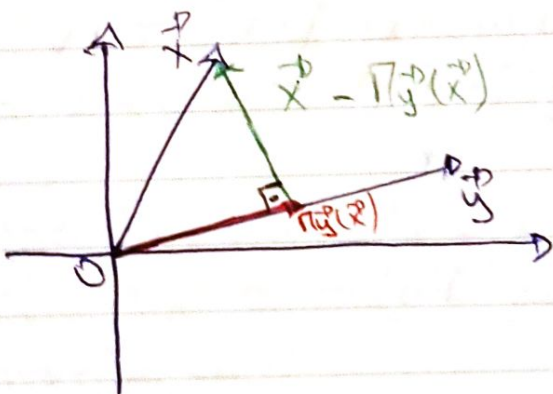 x⃗
x⃗ - Πy⃗(x⃗)
y⃗
Πy⃗(x⃗)
O